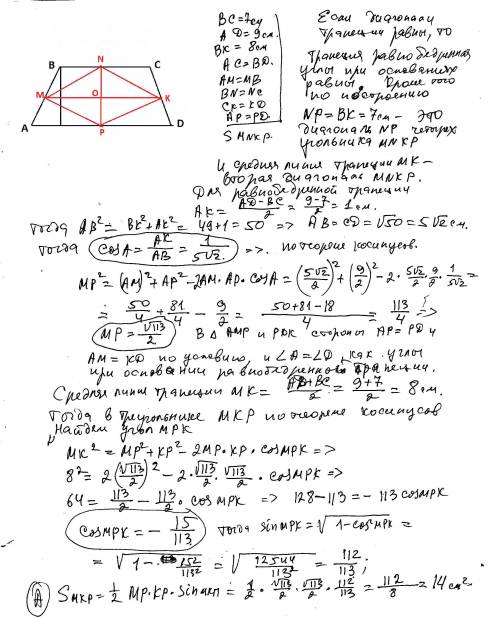 B N C
M O K
A P D
BC=7см
AD=9см.
BK = 8см
AC=BD.
AM=MB
BN=NC
CK=KD
AP=PD
SMNKP.
Если диагонали
трапеции равны, то
трапеция равнобедренная
углы при основаниях
равны. Кроме того
по построению
NP=BK=7см - это
диагональ NP четырех
угольника MNKP
И средняя линия трапеции MK-
вторая диагональ MNKP.
Для равнобедренной трапеции
AK = (AD-BC)/2 = (9-7)/2 = 1см.
тогда AB²= BK²+AK²= 49+1=50 => AB=CD=√50=5√2 см.
тогда cosA= AK/AB = 1/(5√2) =>. по теореме косинусов.
MP²=(AM)²+AP²-2AM·AP·cosA=(5√2/2)²+(9/2)²-2·5√2/2·9/2·1/(5√2)=
= 50/4+81/4-9/2= (50+81-18)/4 = 113/4 =>
MP= √113/2 В Δ AMP и PDK стороны AP=PD и
AM=KD по условию, и ∠A=∠D, как углы
при основании равнобедренной трапеции.
Средняя линия трапеции MK= (AD+BC)/2 = (9+7)/2 = 8см.
Тогда в треугольнике MKP по теореме косинусов
Найдем угол MPK
MK²=MP²+KP²-2MP·KP·cosMPK=>
8²= 2(√113/2)²-2·√113/2·√113/2·cosMPK=>
64= 113/2-113/2·cosMPK => 128-113=-113cosMPK
cosMPK=-15/113 тогда sinMPK=√(1-cos²MPK)=
=√(1-15²/113²)=√(12544/113²)=112/113;
SMKP=1/2 MP·KP·sinMKP=1/2·√113/2·√113/2·112/113=112/8=14см²